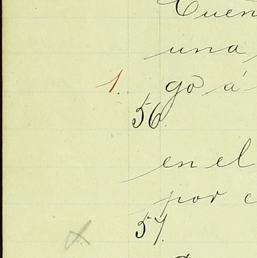 Cuen
una
1. go á
56.
en el
por c
57.